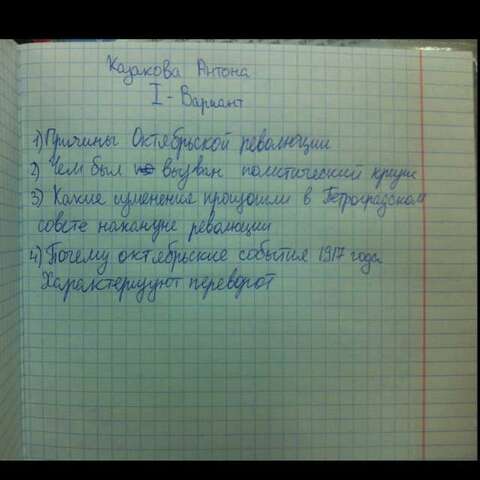 Казакова Антона
I - Вариант
1) Причины Октябрьской революции
2) Чем был вызван политический кризис
3) Какие изменения произошли в Петроградском
совете накануне революции
4) Почему октябрьские события 1917 года
Характеризуют переворот